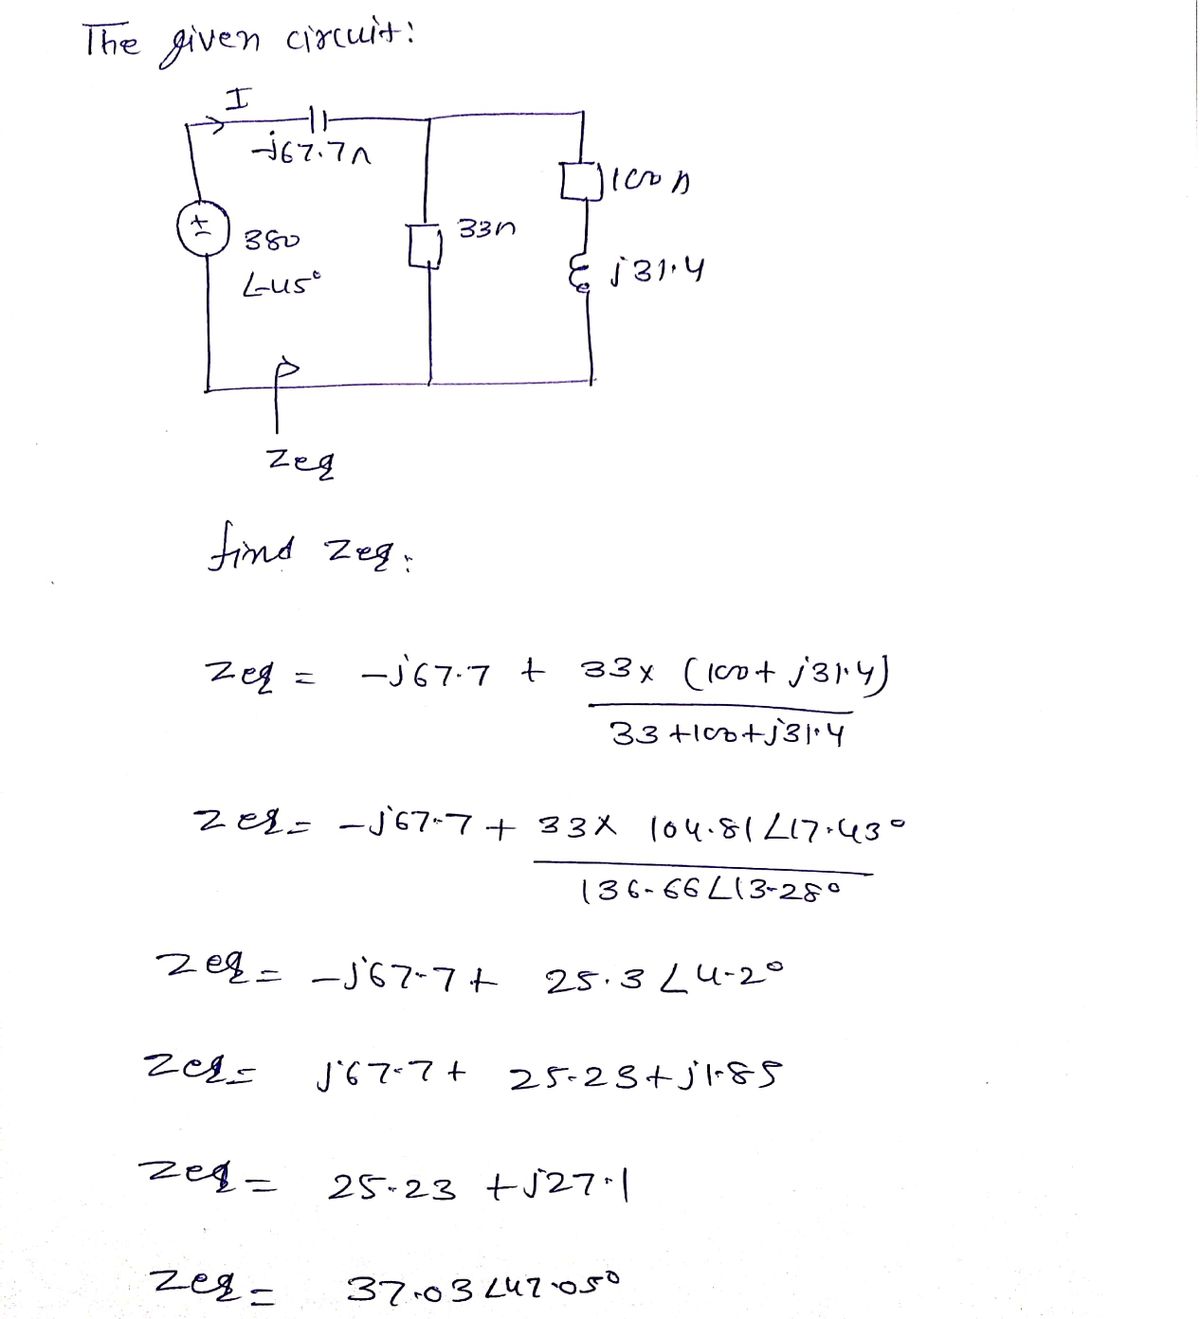 The given circuit:
I
-j67.7n
100n
33n
380
∠-45°
j31.4
Zeq
find Zeq:
Zeq = -j67.7 + 33x (100+ j31.4)
33+100+j31.4
Zeq = -j67.7 + 33x 104.81∠17.43°
136.66∠13.28°
Zeq = -j67.7+ 25.3∠4.2°
Zeq = j67.7+ 25.23+j1.85
Zeq = 25.23 +j27.1
Zeq = 37.03∠47.05°